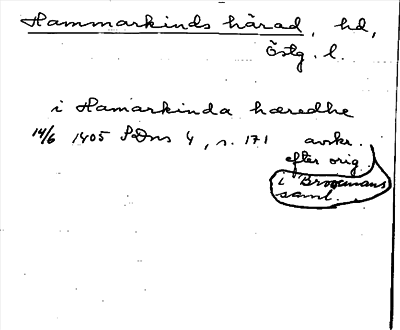 Hammarkinds härad, hd,
Östg. l.
i Hamarkinda hæredhe
14/6 1405 SDns 4, s. 171 avskr.
efter orig.
i Broocmans
saml.